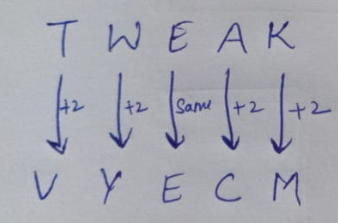 T W E A K
+2 +2 Same +2 +2
V Y E C M